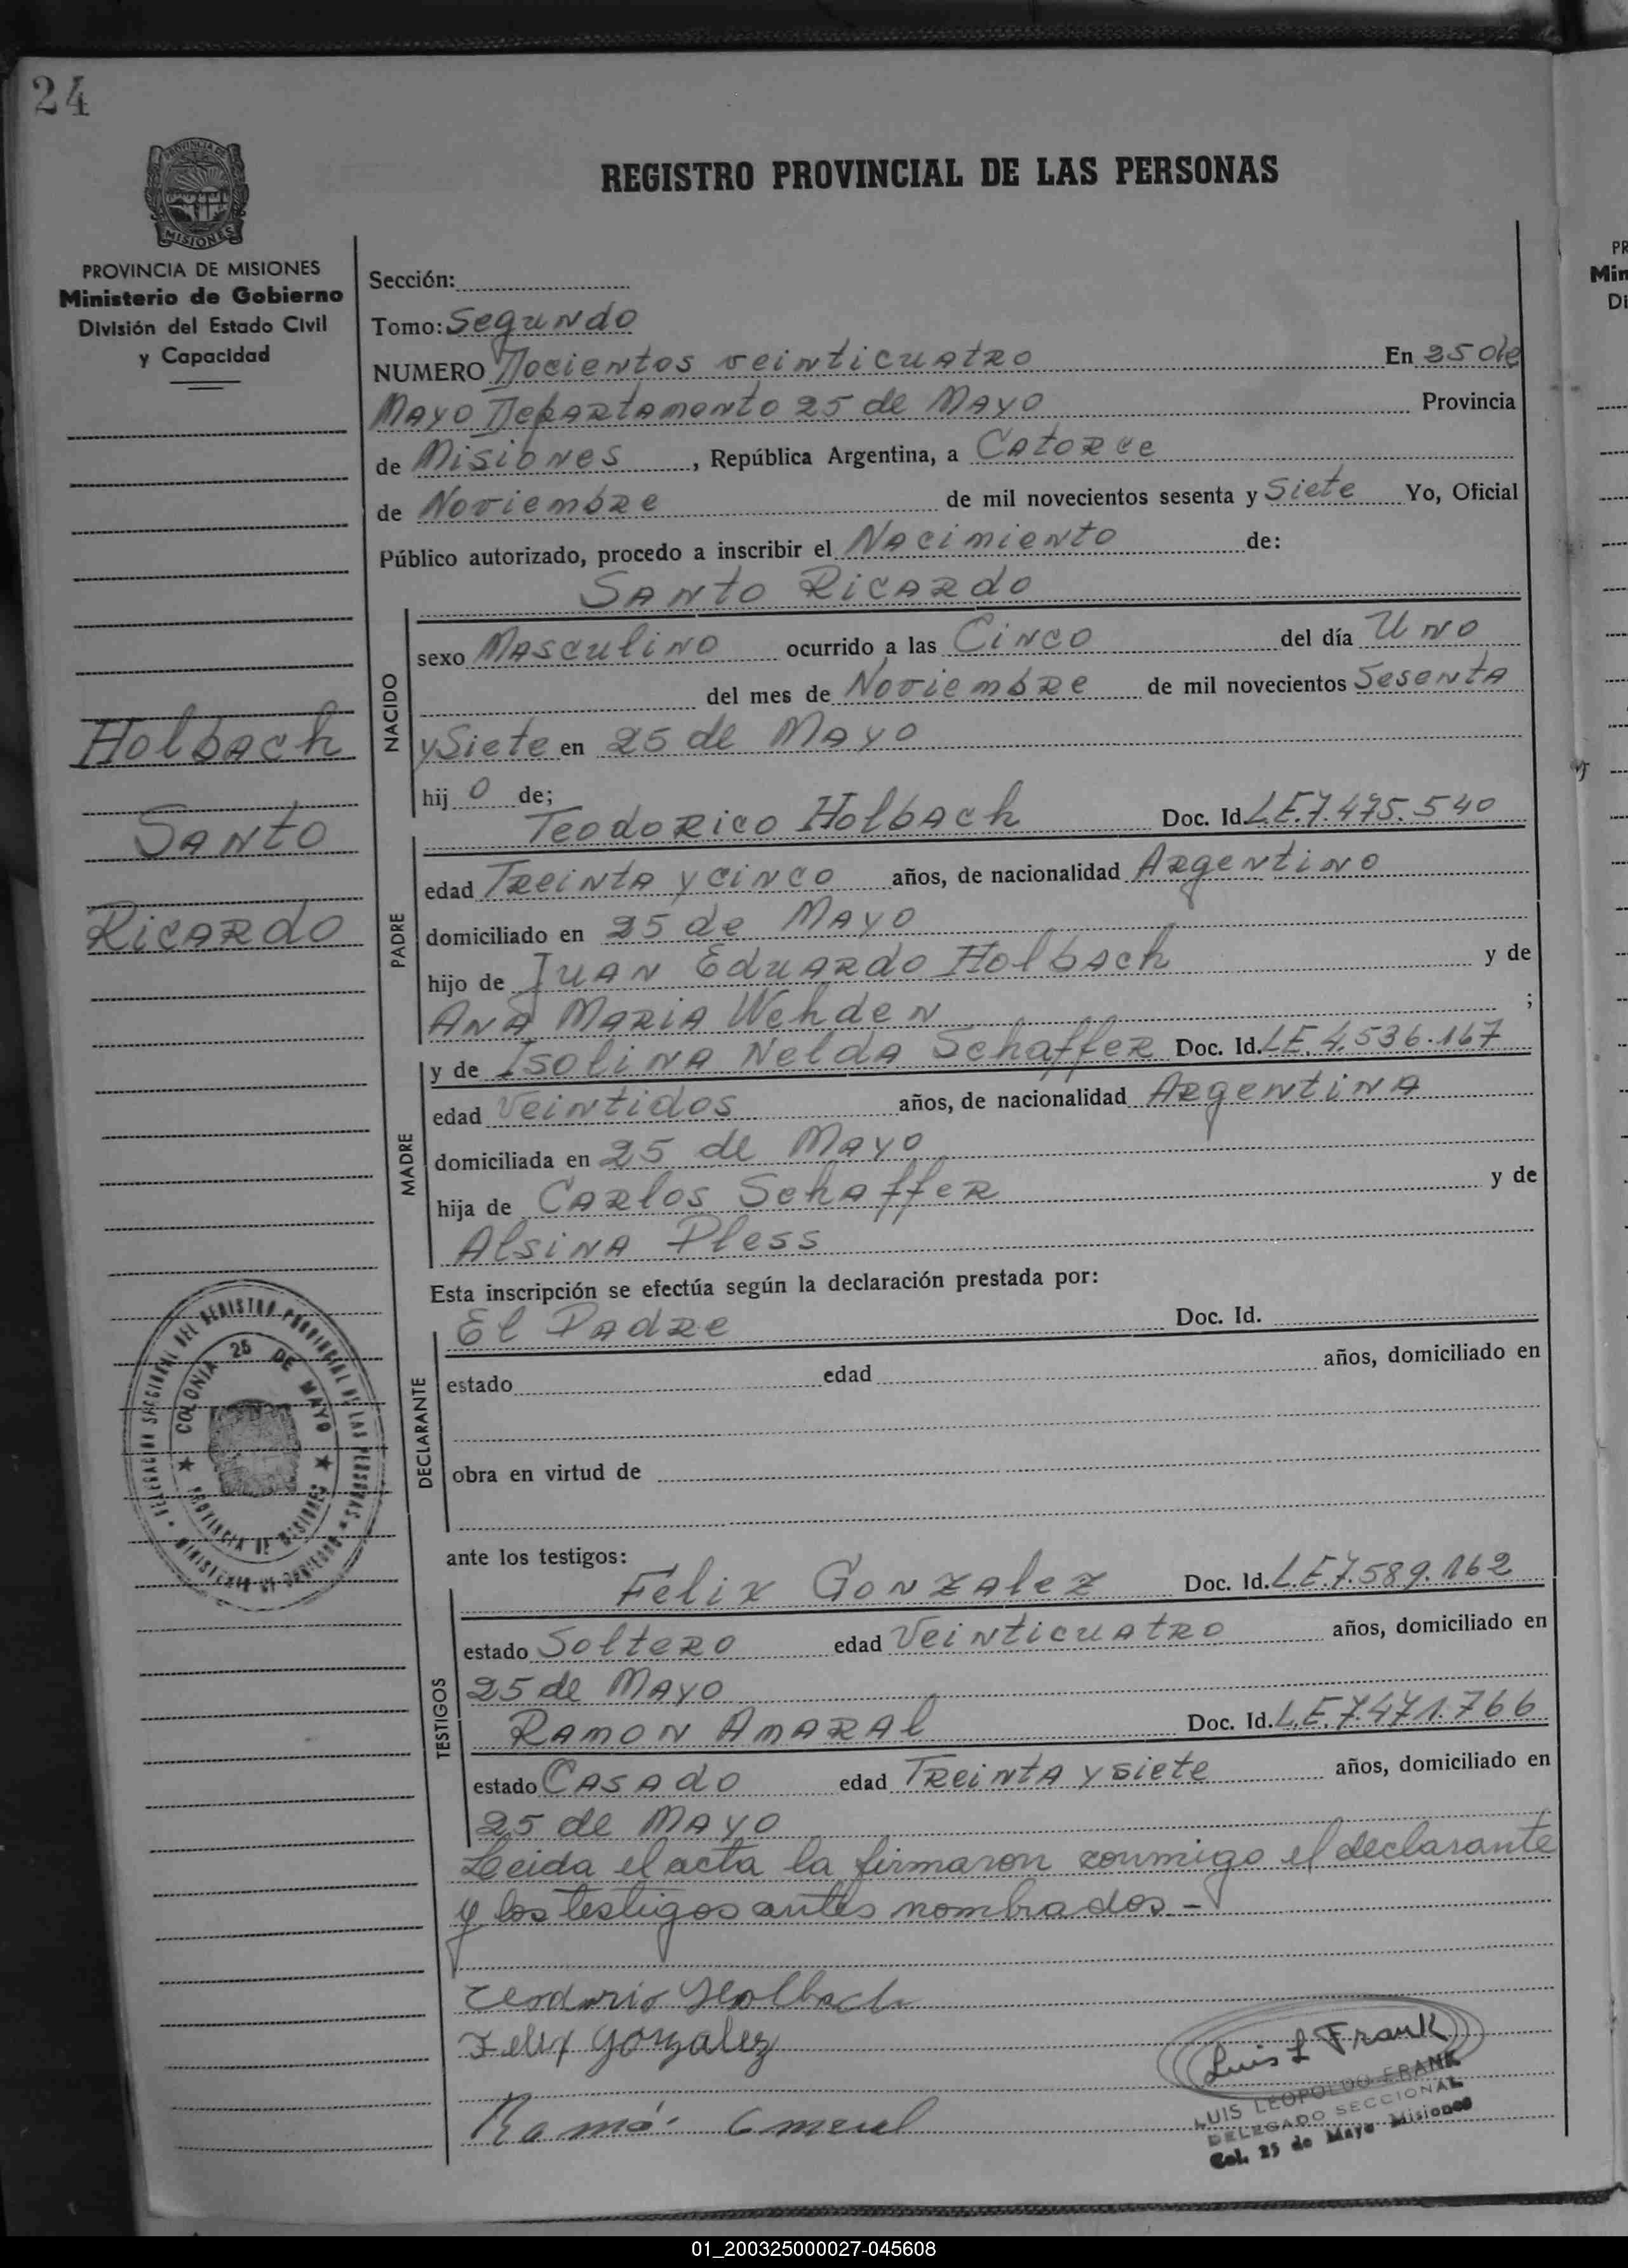 24
PROVINCIA DE
MISIONES
REGISTRO PROVINCIAL DE LAS PERSONAS
PROVINCIA DE MISIONES
Ministerio de Gobierno
División del Estado Civil
y Capacidad
Holbach
Santo
Ricardo
Sección:
Tomo: Segundo
NUMERO Docientos veinticuatro En 25 de
Mayo Departamento 25 de Mayo Provincia
de Misiones, República Argentina, a Catorce
de Noviembre de mil novecientos sesenta y Siete Yo, Oficial
Público autorizado, procedo a inscribir el Nacimiento de:
Santo Ricardo
NACIDO
sexo Masculino ocurrido a las Cinco del día Uno
del mes de Noviembre de mil novecientos Sesenta
y Siete en 25 de Mayo
hij o de;
Teodorico Holbach Doc. Id. L.E. 7.475.540
PADRE
edad Treinta y cinco años, de nacionalidad Argentino
domiciliado en 25 de Mayo
hijo de Juan Eduardo Holbach y de
Ana Maria Wehden ;
y de Isolina Nelda Schaffer Doc. Id. L.E. 4.536.167
MADRE
edad Veintidos años, de nacionalidad Argentina
domiciliada en 25 de Mayo
hija de Carlos Schaffer y de
Alsina Pless
Esta inscripción se efectúa según la declaración prestada por:
El Padre Doc. Id.
DECLARANTE
estado edad años, domiciliado en
obra en virtud de
DELEGACION SECCIONAL DEL REGISTRO PROVINCIAL DE LAS PERSONAS
MINISTERIO DE GOBIERNO
COLONIA 25 DE MAYO
PROVINCIA DE MISIONES
ante los testigos:
Felix Gonzalez Doc. Id. L.E. 7.589.162
TESTIGOS
estado Soltero edad Veinticuatro años, domiciliado en
25 de Mayo
Ramon Amaral Doc. Id. L.E. 7.471.766
estado Casado edad Treinta y siete años, domiciliado en
25 de Mayo
Leida el acta la firmaron conmigo el declarante
y los testigos antes nombrados -
Teodorio Holbach
Felix Gonzalez
Luis L Frank
LUIS LEOPOLDO FRANK
DELEGADO SECCIONAL
Col. 25 de Mayo Misiones
01_200325000027-045608